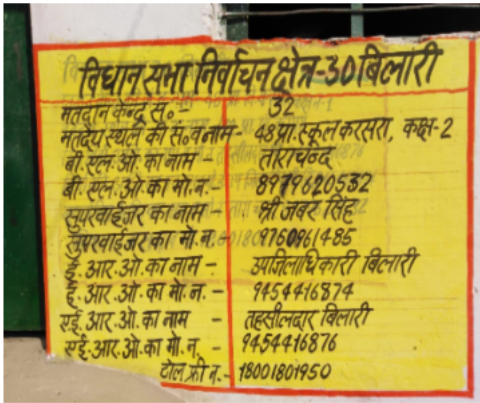 विधान सभा निर्वाचन क्षेत्र-30 बिलारी
मतदान केन्द्र सं०- 32
मतदेय स्थल की सं० व नाम- 48 प्रा. स्कूल करसरा, कक्ष-2
बी. एल. ओ. का नाम - ताराचन्द
बी. एल. ओ. का मो. न. - 8979620532
सुपरवाईजर का नाम - श्री जबर सिंह
सुपरवाईजर का मो. न. 9760961485
ई. आर. ओ. का नाम - उपजिलाधिकारी बिलारी
ई. आर. ओ. का मो. न. - 9454416874
एई. आर. ओ. का नाम - तहसीलदार बिलारी
एई. आर. ओ. का मो. न. - 9454416876
टोल फ्री न. - 18001801950